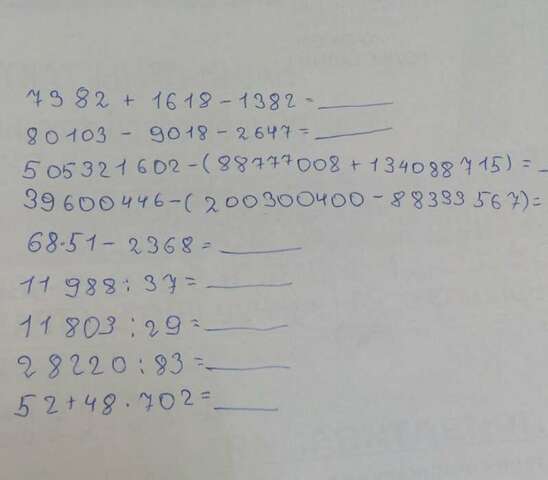 7382 + 1618 - 1382 = ____
80103 - 9018 - 2647 = ____
505321602 - (88777008 + 134088715) = _
39600446 - (200300400 - 88393567) =
68·51 - 2368 = ____
11 988 : 37 = ____
11 803 : 29 = ____
28220 : 83 = ____
52 + 48 · 702 = ____